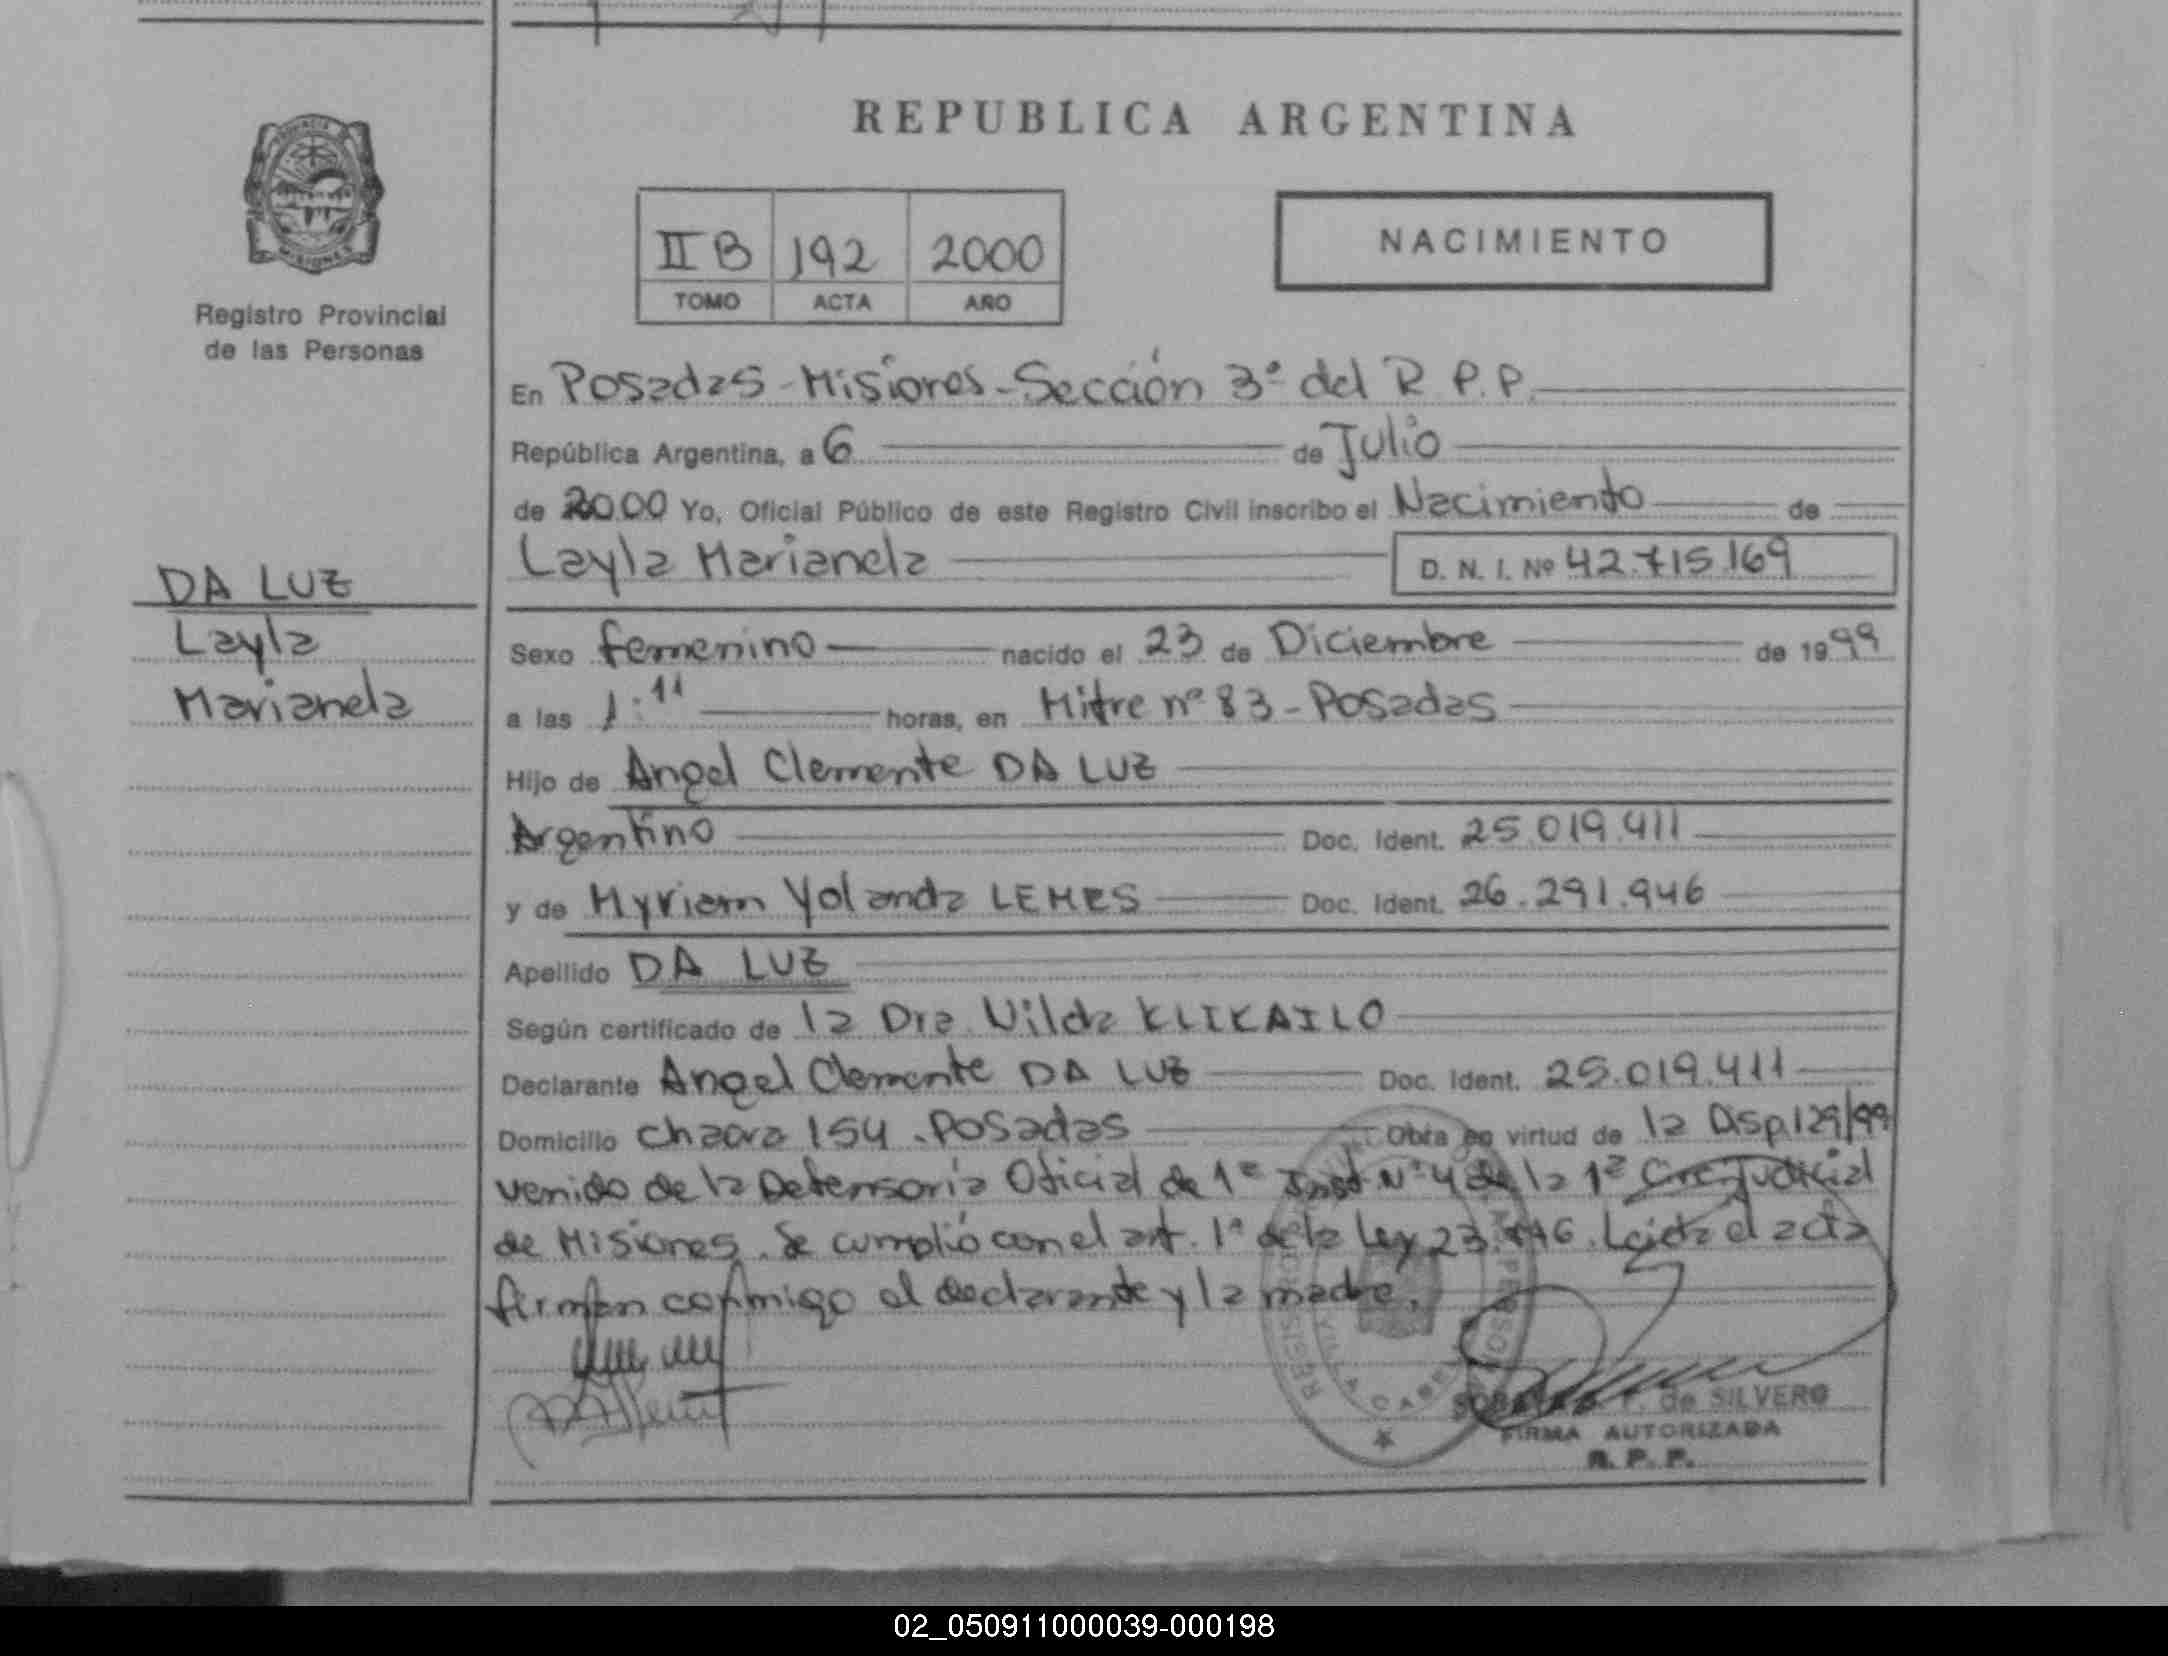 REPUBLICA ARGENTINA
II B 192 2000
TOMO ACTA AÑO
NACIMIENTO
PROVINCIA DE MISIONES
Registro Provincial
de las Personas
En Posadas - Misiones - Sección 3ª del R.P.P.
República Argentina, a 6 de Julio
de 2000 Yo, Oficial Público de este Registro Civil inscribo el Nacimiento de
Layla Marianela D. N. I. Nº 42.715.169
DA LUZ
Layla
Marianela
Sexo femenino nacido el 23 de Diciembre de 1999
a las 1:11 horas, en Mitre nº 83 - Posadas
Hijo de Angel Clemente DA LUZ
Argentino Doc. Ident. 25.019.411
y de Myriam Yolanda LEMES Doc. Ident. 26.291.946
Apellido DA LUZ
Según certificado de la Dra Nilda KLIKAILO
Declarante Angel Clemente DA LUZ Doc. Ident. 25.019.411
Domicilio chacra 154. Posadas Obra en virtud de la Disp.129/99
venido de la Defensoria Oficial de 1ª Inst. Nº 4 de la 1ª Circ. Judicial
de Misiones. Se cumplió con el art. 1º de la Ley 23.776. Leida el acta
firman conmigo el declarante y la madre.
de SILVERO
FIRMA AUTORIZADA
R. P. P.
02_050911000039-000198